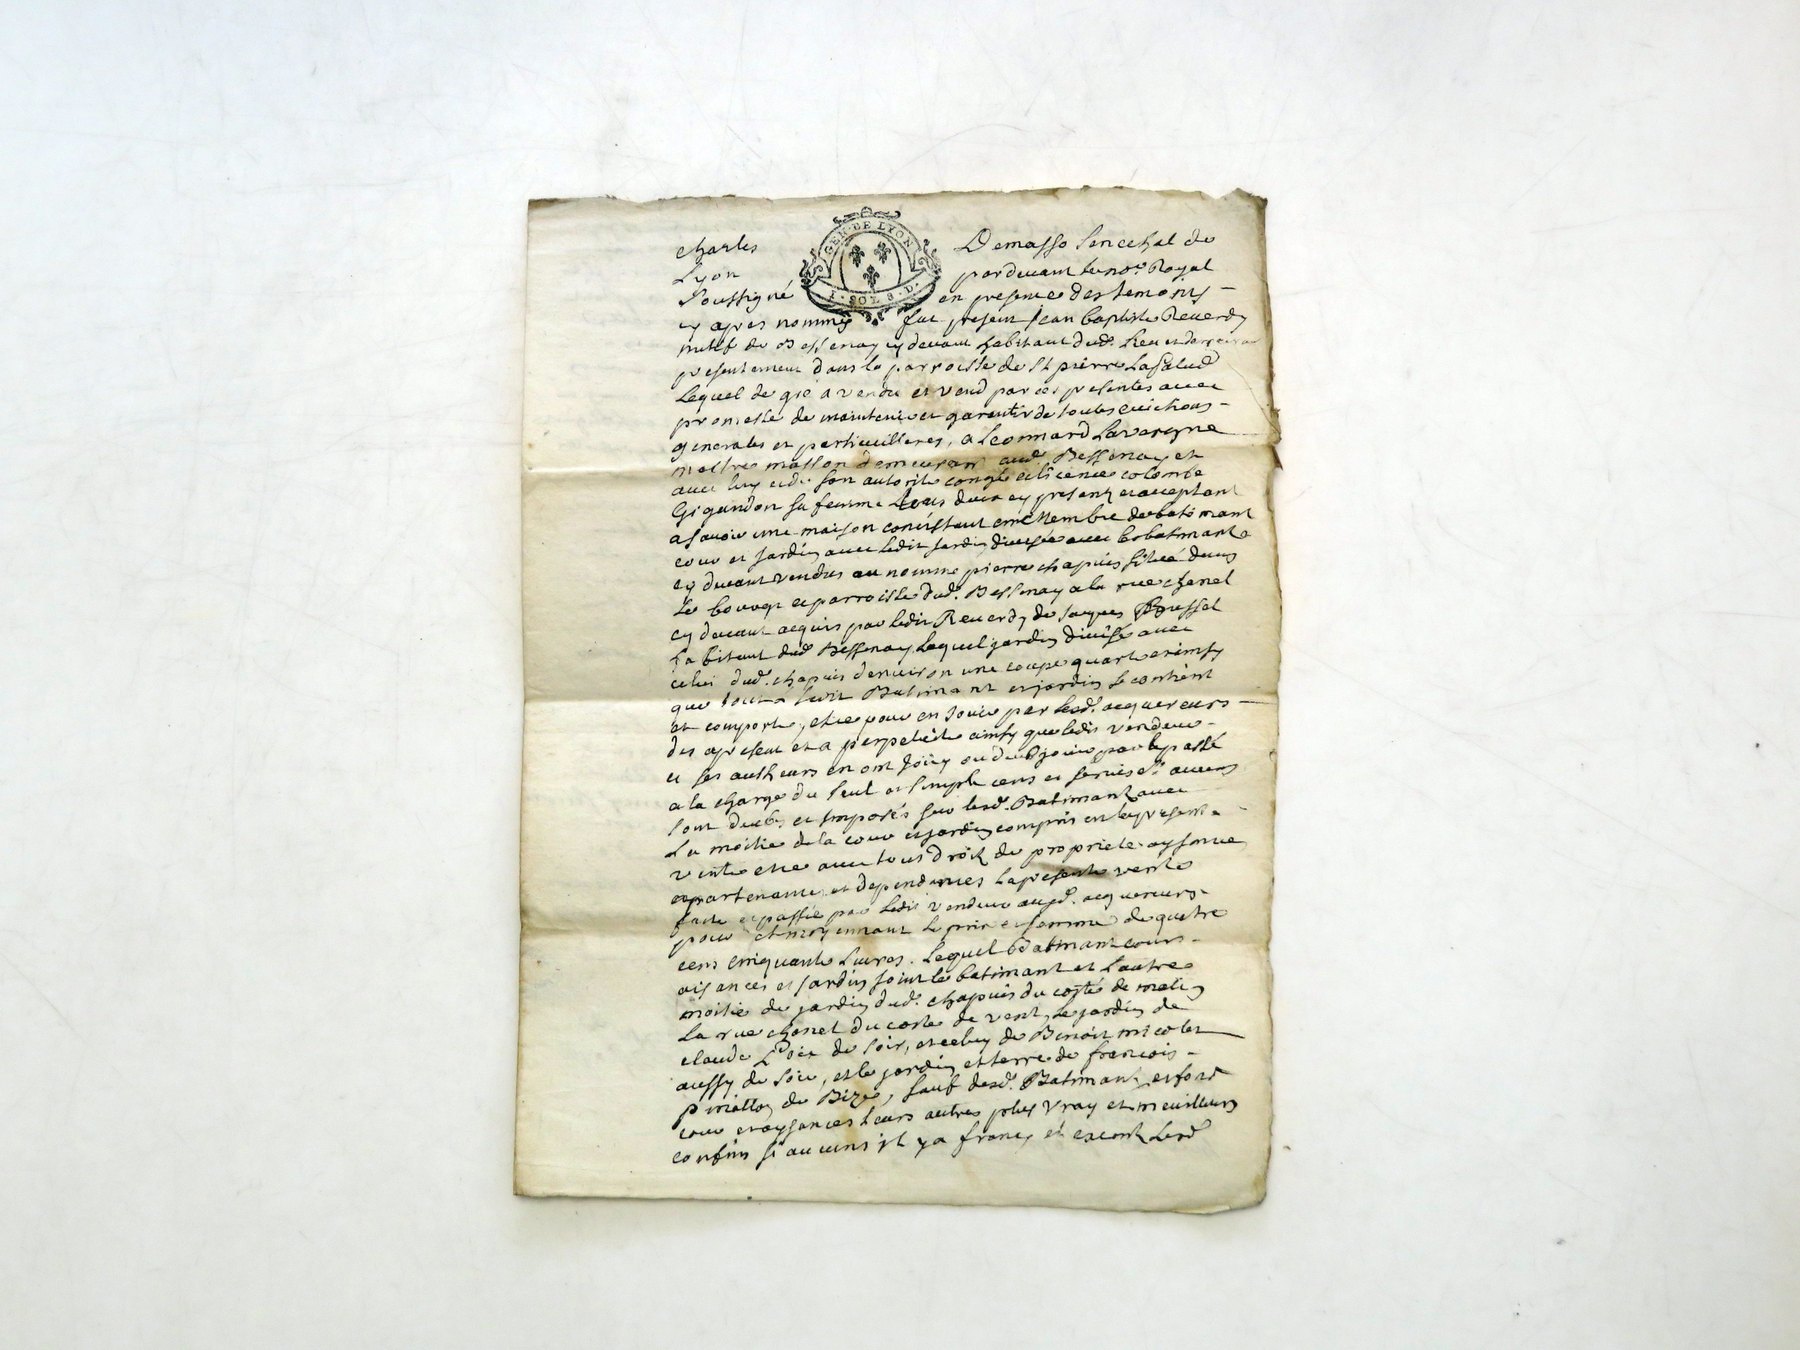 charles Demasso Senechal de
GEN·DE LYON
Lyon pardevant le no.re Royal
Soussigné en presence des temoins
I·SOL 8·D·
cy apres nommés fut present Jean baptiste Reverdy
natif de Bessenay cy devant habitant dud. lieu et
presentement dans la parroisse de St pierre Lapalud
Lequel de gré a vendu et vend par ces presentes avec
promesse de maintenir et garentir de toutes evictions
generales et particuilleres, a Leonnard Lavergne
maître masson demeurant aud. Bessenay et
avec luy et de son autorité congé et licence colombe
Gigandon sa femme tous deux cy present et acceptant
a savoir une maison concistant en membre de batimant
cour et jardin avec ledit jardin divisée avec le batimant
cy devant vendus au nomme pierre chapuis situé dans
Le bourg et parroisse dud. Bessenay a la rue chanel
cy devant acquis par ledit Reverdy de Jaques
habitant dud. Bessenay Lequel jardin divisé avec
celui dud. chapuis denviron une coupe quarte et ainsy
que tout ledit Batimant et jardin se contient
et comporte, et ce pour en Jouir par lesd. acquereurs
des apresent et a perpetuité ainsy que ledit vendeur
et ses autheurs en ont joüy ou dub jouir par le passé
a la charge du seul et simple cens et servis sy aucuns
sont dubs et imposés sur lesd. Batimant avec
La moitie de la cour et jardin compris en la presente
vente et ce avec tous droit de propriete aysances
apartenances et dependances la presente vente
faite et passée par ledit vendeur ausd. acquereurs
pour et moyennant le prix et somme de quatre
cens cinquante Livres. Lequel Batimant cours
aisances et jardin joint le batimant et Lautre
moitie de jardin dud. chapuis du costé de matin
La rue chanel du costé de vent, le jardin de
claude de soir, et celuy de Benoit micolet
aussy de soir, et le jardin et terre de francois
de Bize, sauf desd. Batimant jardin
cour et aysances leurs autres plus vray et meuilleurs
confins si aucuns il y a francs et exempt lesd.